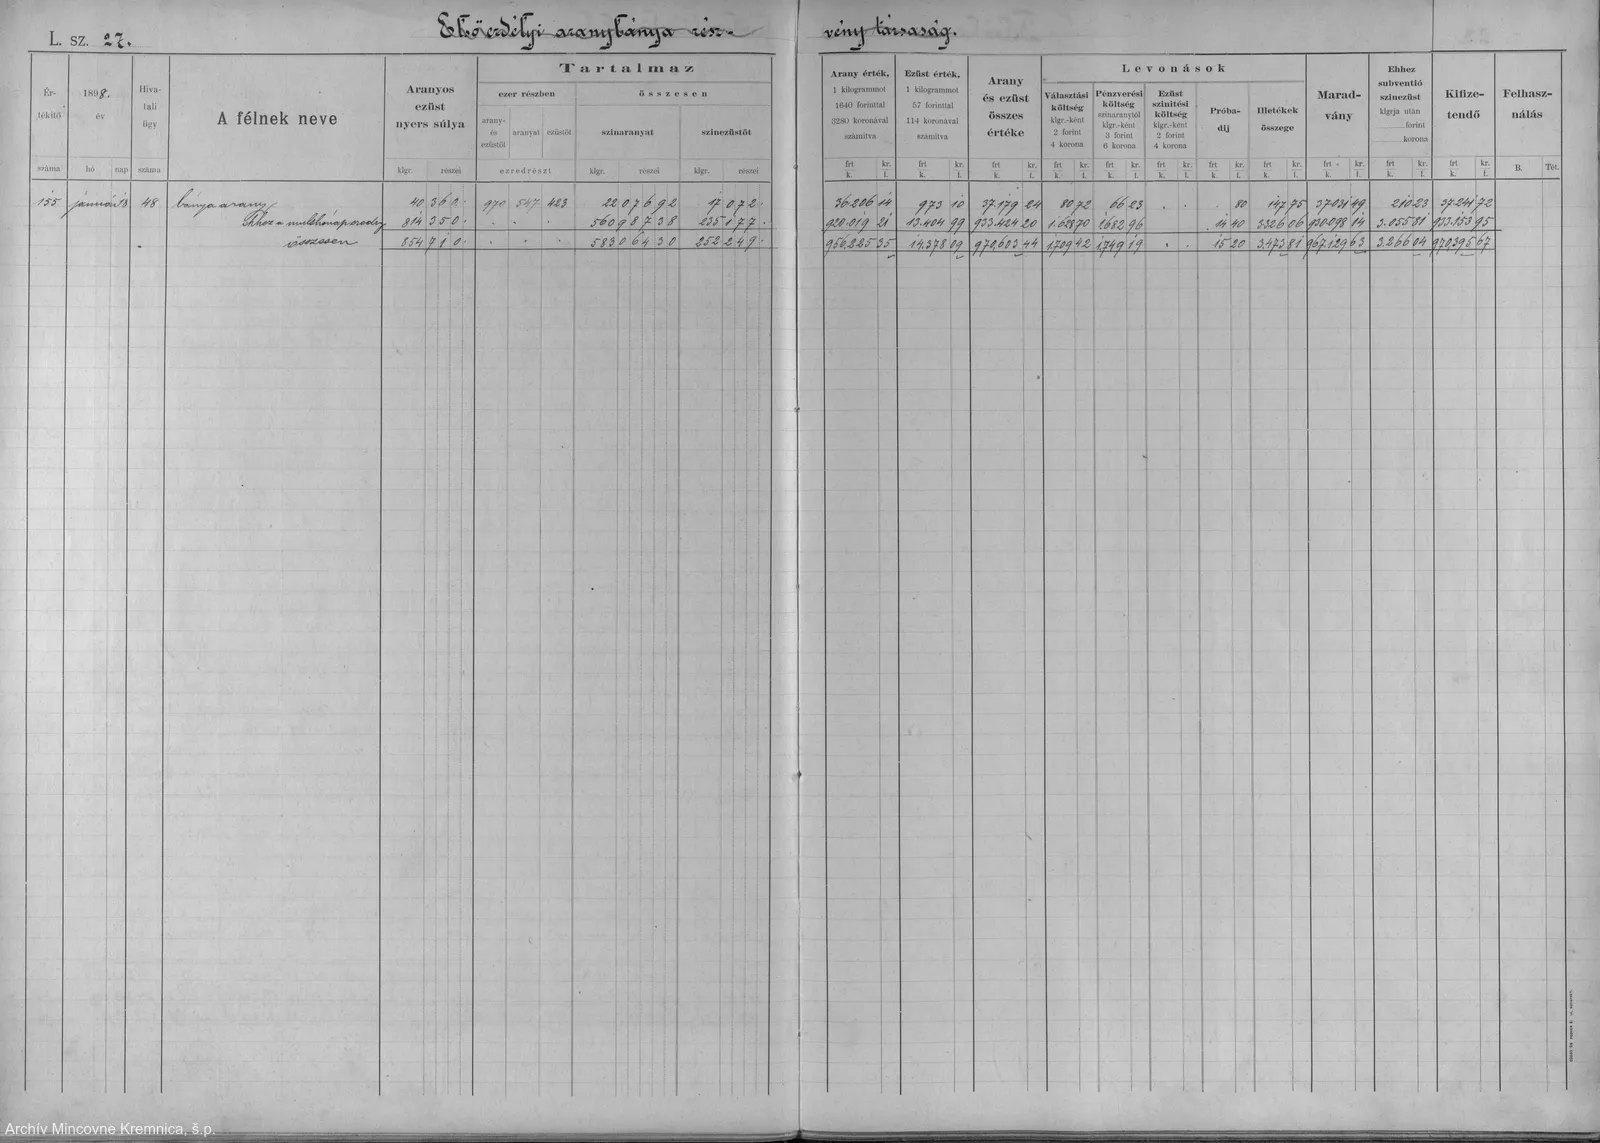 L. sz. 27.
Első erdélyi aranybánya rész-
vény társaság.
Ér-
tékitő
száma
1898.
év
hó nap
Hiva-
tali
ügy
száma
A félnek neve
Aranyos
ezüst
nyers súlya
klgr. részei
Tartalmaz
ezer részben
összesen
arany-
és
ezüstöt
aranyat
ezüstöt
ezredrészt
szinaranyat
klgr. részei
szinezüstöt
klgr. részei
Arany érték,
1 kilogrammot
1640 forinttal
3280 koronával
számitva
frt kr.
k. f.
Ezüst érték,
1 kilogrammot
57 forinttal
114 koronával
számitva
frt kr.
k. f.
Arany
és ezüst
összes
értéke
frt kr.
k. f.
Levonások
Választási
költség
klgr.-ként
2 forint
4 korona
frt kr.
k. f.
Pénzverési
költség
szinaranytól
klgr.-ként
3 forint
6 korona
frt kr.
k. f.
Ezüst
szinitési
költség
klgr.-ként
2 forint
4 korona
frt kr.
k. f.
Próba-
dij
frt kr.
k. f.
Illetékek
összege
frt kr.
k. f.
Marad-
vány
frt kr.
k. f.
Ehhez
subventió
szinezüst
klgrja után
forint
korona
frt kr.
k. f.
Kifize-
tendő
frt kr.
k. f.
Felhasz-
nálás
B. Tét.
155 január 13 48 bánya arany 40 360 970 547 423 22 07692 17 072 36.206 14 973 10 37.179 24 80 72 66 23 80 147 75 37.031 49 210 23 37.241 72
Ehhez a mult hónap eredm 814 350 560 98738 235 177 920.019 21 13.404 99 933.424 20 1.628 70 1682 96 14 40 3.326 06 930.098 14 3.055 81 933.153 95
összesen 854 710 583 06430 252 249 956.225 35 14.378 09 970.603 44 1709 42 1749 19 15 20 3.473 81 967.129 63 3.266 04 970.395 67
Archív Mincovne Kremnica, š.p.